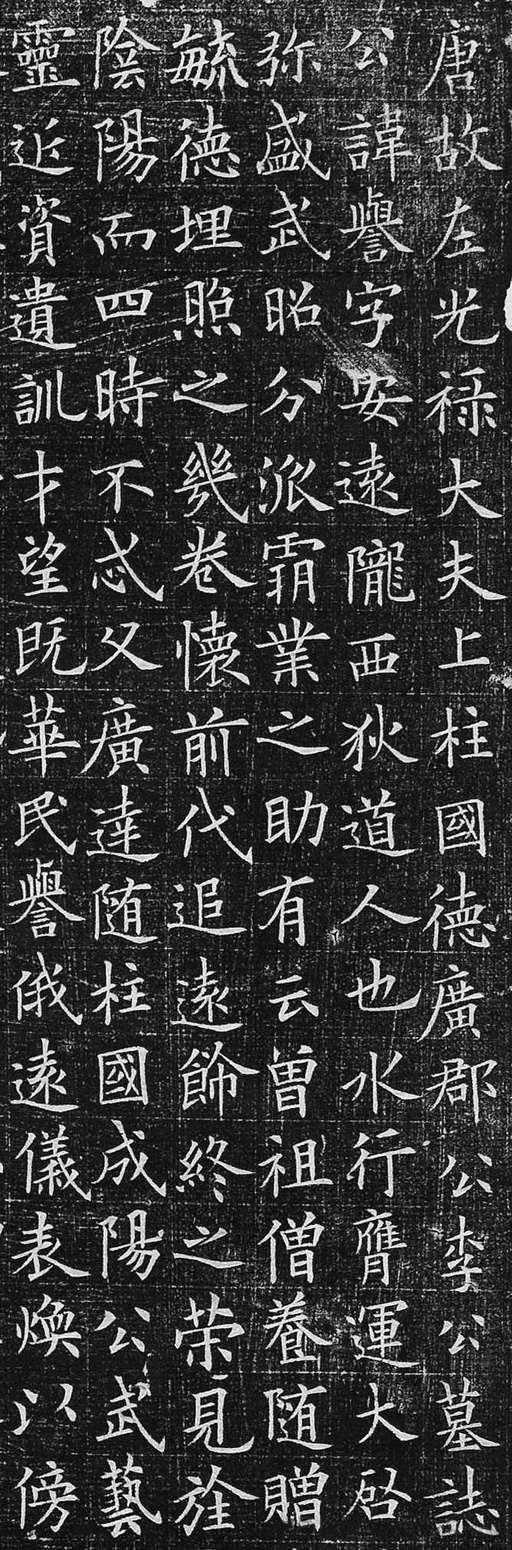 唐故左光禄大夫上柱國德廣郡公李公墓誌
公諱譽字安遠隴西狄道人也水行膺運大啓
弥盛武昭分派霸業之助有云曽祖僧養随贈
毓德埋照之義卷懷前代追遠飾終之荣見旌
陰陽而四時不忒父廣達随柱國成陽公武藝
靈近資遺訓才望既華民譽俄遠儀表煥以傍